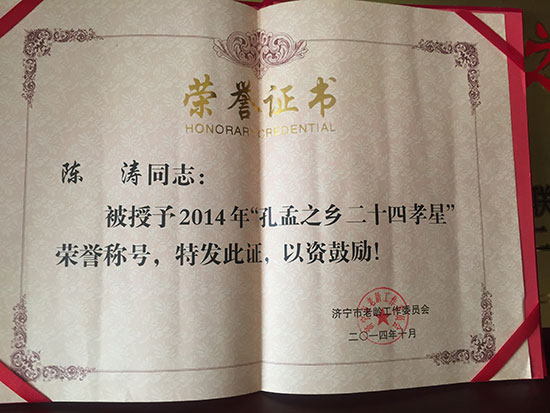 荣誉证书
HONORARY CREDENTIAL
陈 涛同志：
被授予2014年“孔孟之乡二十四孝星”
荣誉称号，特发此证，以资鼓励！
济宁市老龄工作委员会
二〇一四年十月